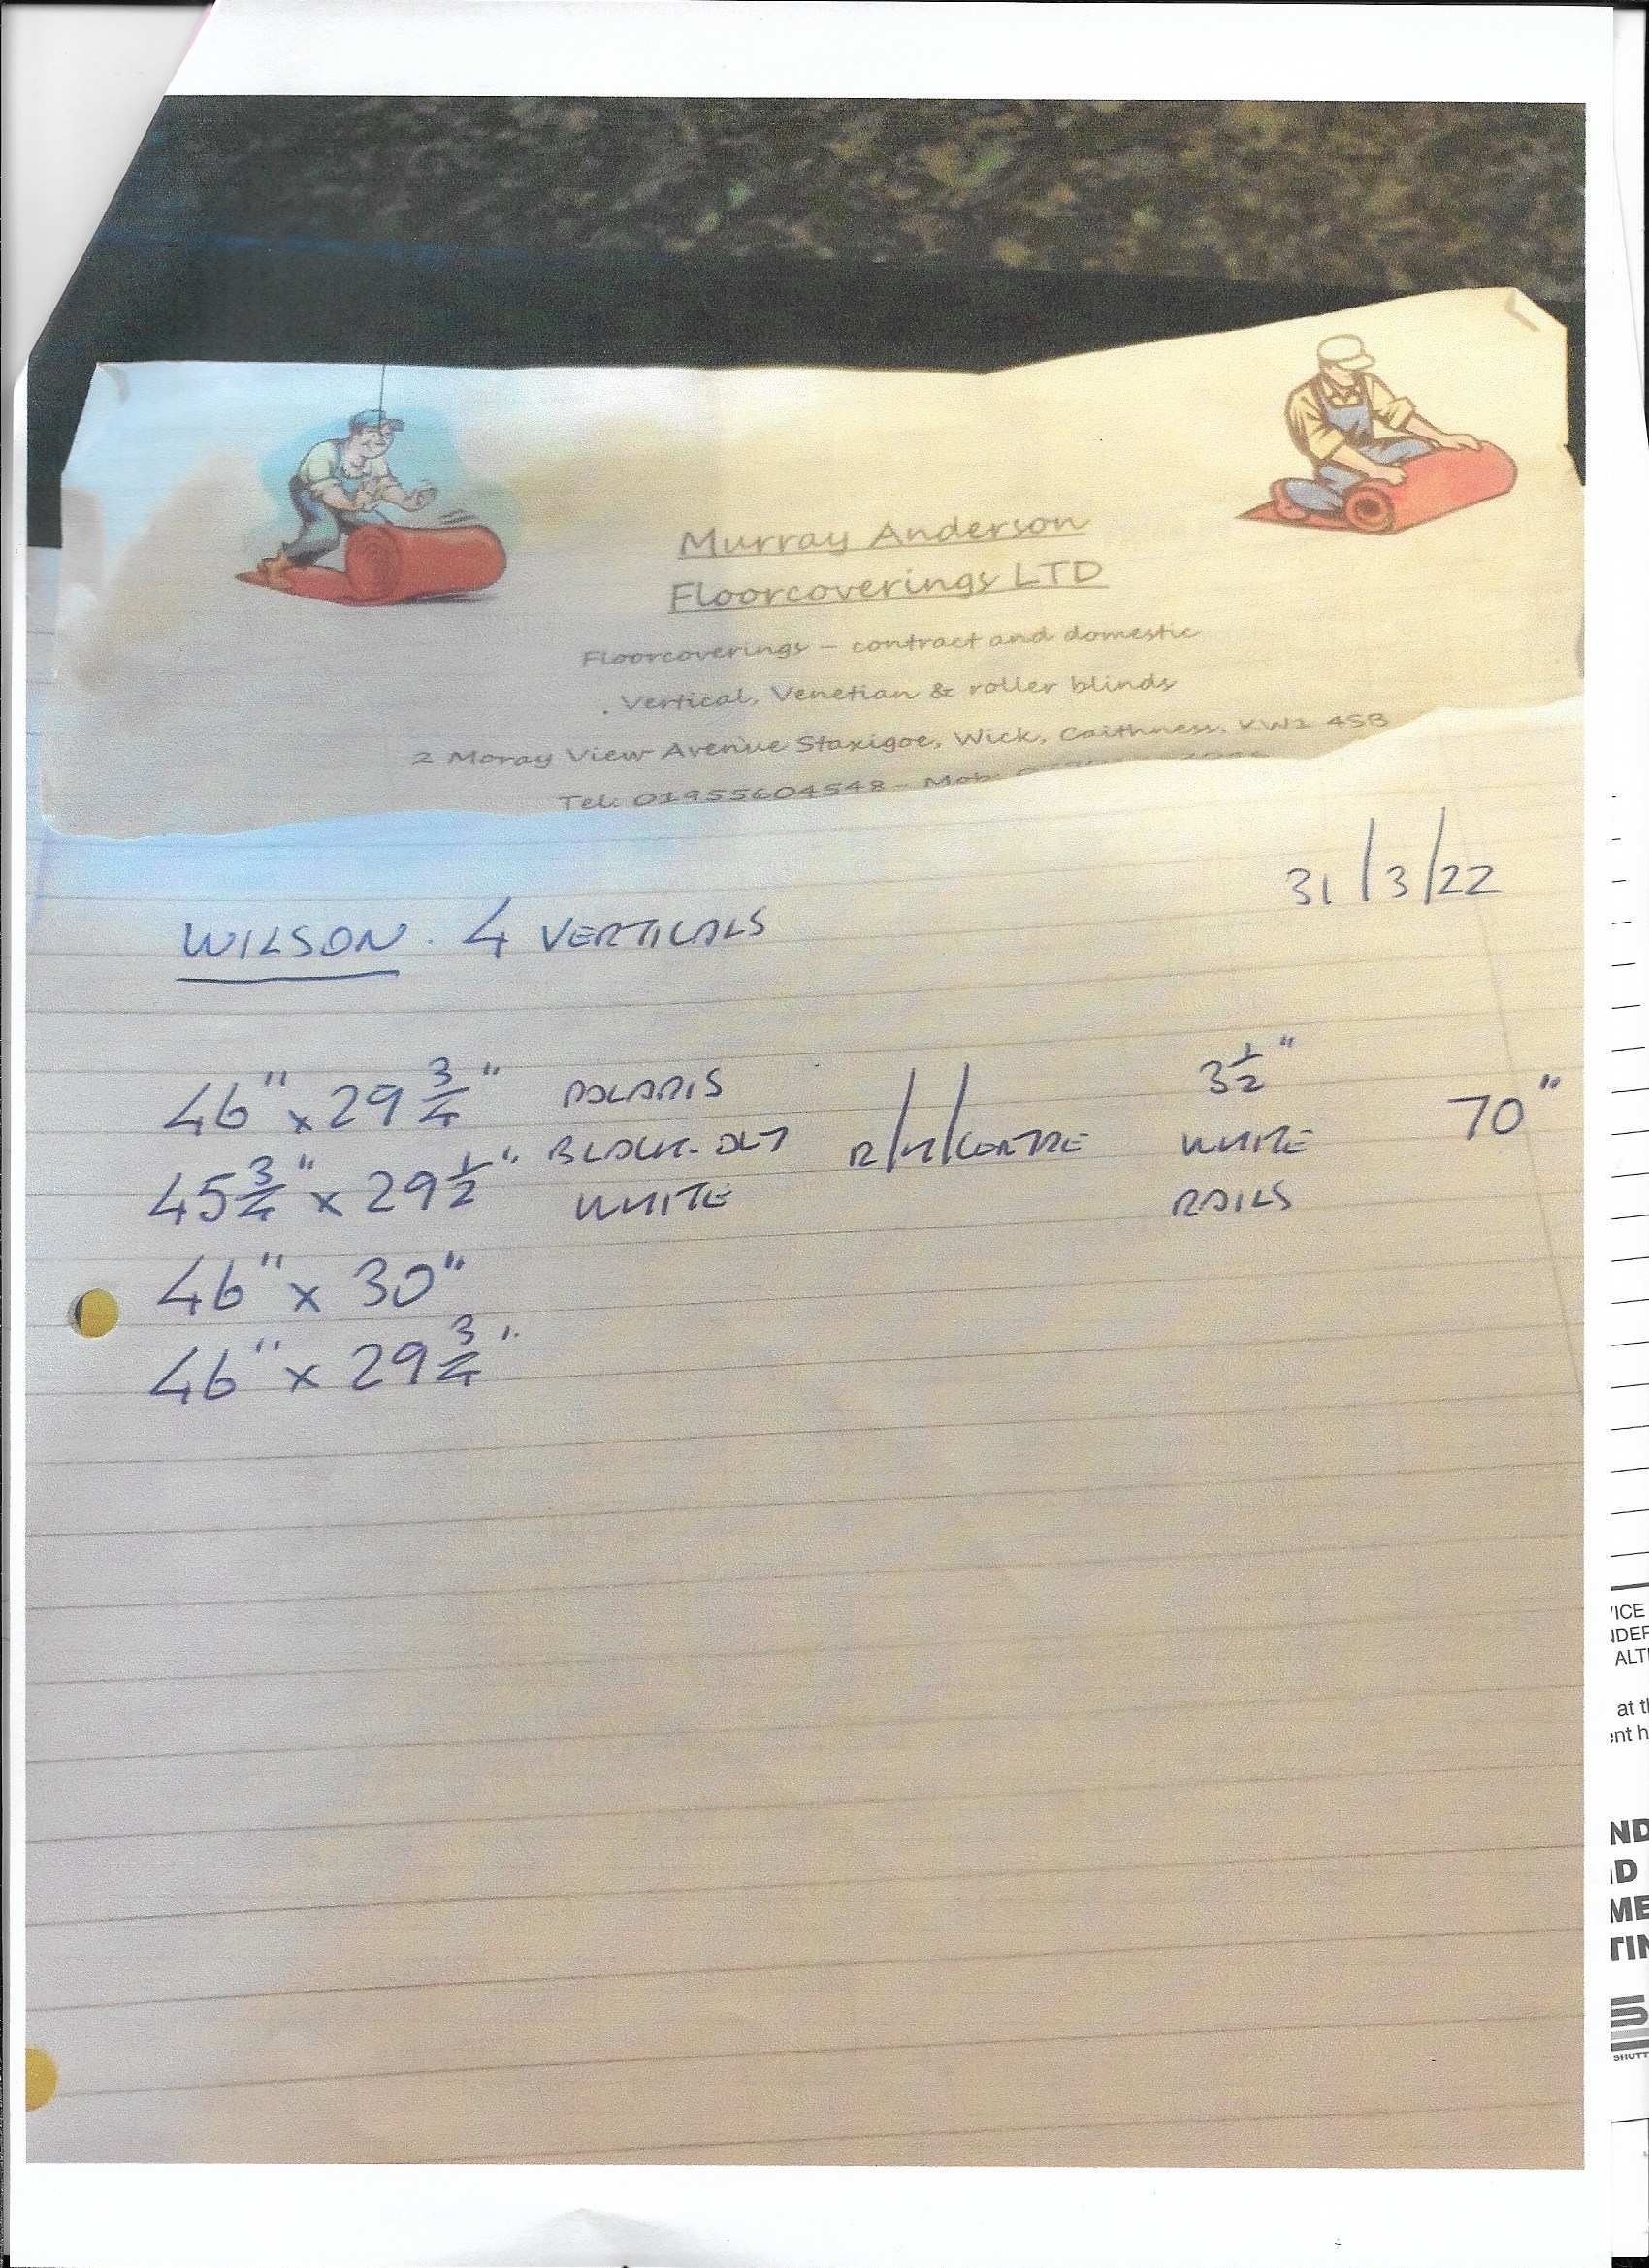 Murray Anderson
Floorcoverings LTD
Floorcoverings – contract and domestic
. Vertical, Venetian & roller blinds
2 Moray View Avenue Staxigoe, Wick, Caithness, KW1 4SB
Tel: 01955604548 – Mob:
31/3/22
WILSON. 4 VERTICALS
46" x 29 3/4" POLARIS 3 1/2" 70"
45 3/4" x 29 1/2" BLOCK-OUT R/H/CENTRE WHITE
WHITE RAILS
46" x 30"
46" x 29 3/4"
VICE
at th
ent h
ND
D
ME
TIN
SHUTT